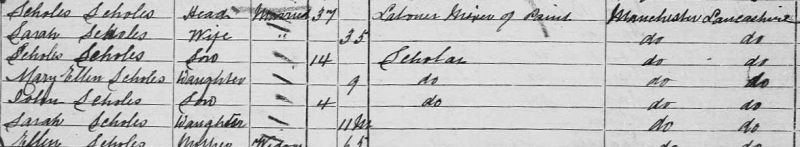 Scholes Scholes Head Married 37 Labourer Mixer of Paint Manchester Lancashire
Sarah Scholes Wife " 35 do do
Scholes Scholes Son " 14 Scholar do do
Mary Ellen Scholes Daughter " 9 do do do
John Scholes Son " 4 do do do
Sarah Scholes Daughter " 11 m do do
Ellen Scholes Mother Widow 65 do do